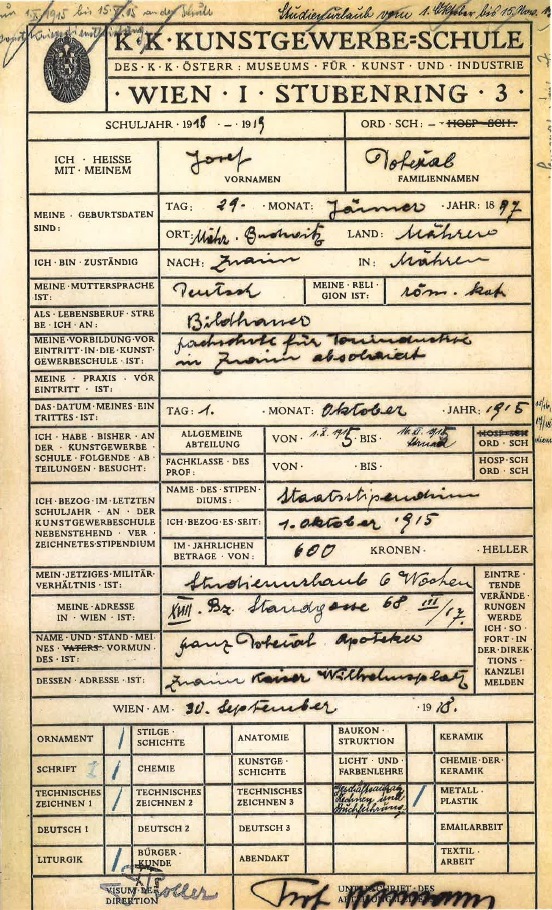 Studienurlaub vom 1. Oktober bis 15. Nov.
K·K·KUNSTGEWERBE=SCHULE
DES·K·K·ÖSTERR: MUSEUMS·FÜR·KUNST·UND·INDUSTRIE
·WIEN·I·STUBENRING·3·
SCHULJAHR·1918·–·1919 ORD·SCH:·– HOSP·SCH:
ICH·HEISSE MIT·MEINEM
Josef
VORNAMEN
FAMILIENNAMEN
MEINE·GEBURTSDATEN SIND:
TAG: 29· ·MONAT: Jänner ·JAHR: 1897
ORT: Mähr. Budwitz LAND: Mähren
ICH·BIN·ZUSTÄNDIG NACH: Znaim IN: Mähren
MEINE·MUTTERSPRACHE IST: Deutsch MEINE·RELIGION·IST: röm. kat
ALS·LEBENSBERUF·STREBE·ICH·AN: Bildhauer
MEINE·VORBILDUNG·VOR EINTRITT·IN·DIE·KUNSTGEWERBESCHULE·IST:
Fachschule für Tonindustrie
in Znaim
MEINE·PRAXIS·VOR EINTRITT·IST:
DAS·DATUM·MEINES·EINTRITTES·IST: TAG: 1. ·MONAT: Oktober ·JAHR: 1915
ICH·HABE·BISHER·AN DER·KUNSTGEWERBE SCHULE·FOLGENDE·ABTEILUNGEN·BESUCHT:
ALLGEMEINE ABTEILUNG VON· ·BIS· HOSP·SCH ORD·SCH
FACHKLASSE·DES PROF: VON· ·BIS· HOSP·SCH ORD·SCH
ICH·BEZOG·IM·LETZTEN SCHULJAHR·AN·DER KUNSTGEWERBESCHULE NEBENSTEHEND·VERZEICHNETES·STIPENDIUM
NAME·DES·STIPENDIUMS: Staatsstipendium
ICH·BEZOG·ES·SEIT: 1. Oktober 1915
IM·JÄHRLICHEN BETRAGE·VON: 600 KRONEN· ·HELLER
MEIN·JETZIGES·MILITÄRVERHÄLTNIS·IST: Studienurlaub 6 Wochen
MEINE·ADRESSE IN·WIEN·IST: XVIII. Bz. 68 III/17.
NAME·UND·STAND·MEINES·VATERS·VORMUNDES·IST: Franz Apoteker
DESSEN·ADRESSE·IST: Znaim Kaiser Wilhelmsplatz
EINTRETENDE VERÄNDERUNGEN WERDE ICH·SOFORT·IN DER·DIREKTIONS·KANZLEI MELDEN
WIEN·AM· 30. September ·1918.
ORNAMENT STILGESCHICHTE ANATOMIE BAUKONSTRUKTION KERAMIK
SCHRIFT CHEMIE KUNSTGESCHICHTE LICHT·UND·FARBENLEHRE CHEMIE·DER·KERAMIK
TECHNISCHES ZEICHNEN 1 TECHNISCHES ZEICHNEN 2 TECHNISCHES ZEICHNEN 3 METALLPLASTIK
DEUTSCH 1 DEUTSCH 2 DEUTSCH 3 EMAILARBEIT
LITURGIK BÜRGERKUNDE ABENDAKT TEXTILARBEIT
VISUM·DER DIREKTION Roller Prof UNTERSCHRIFT·DES